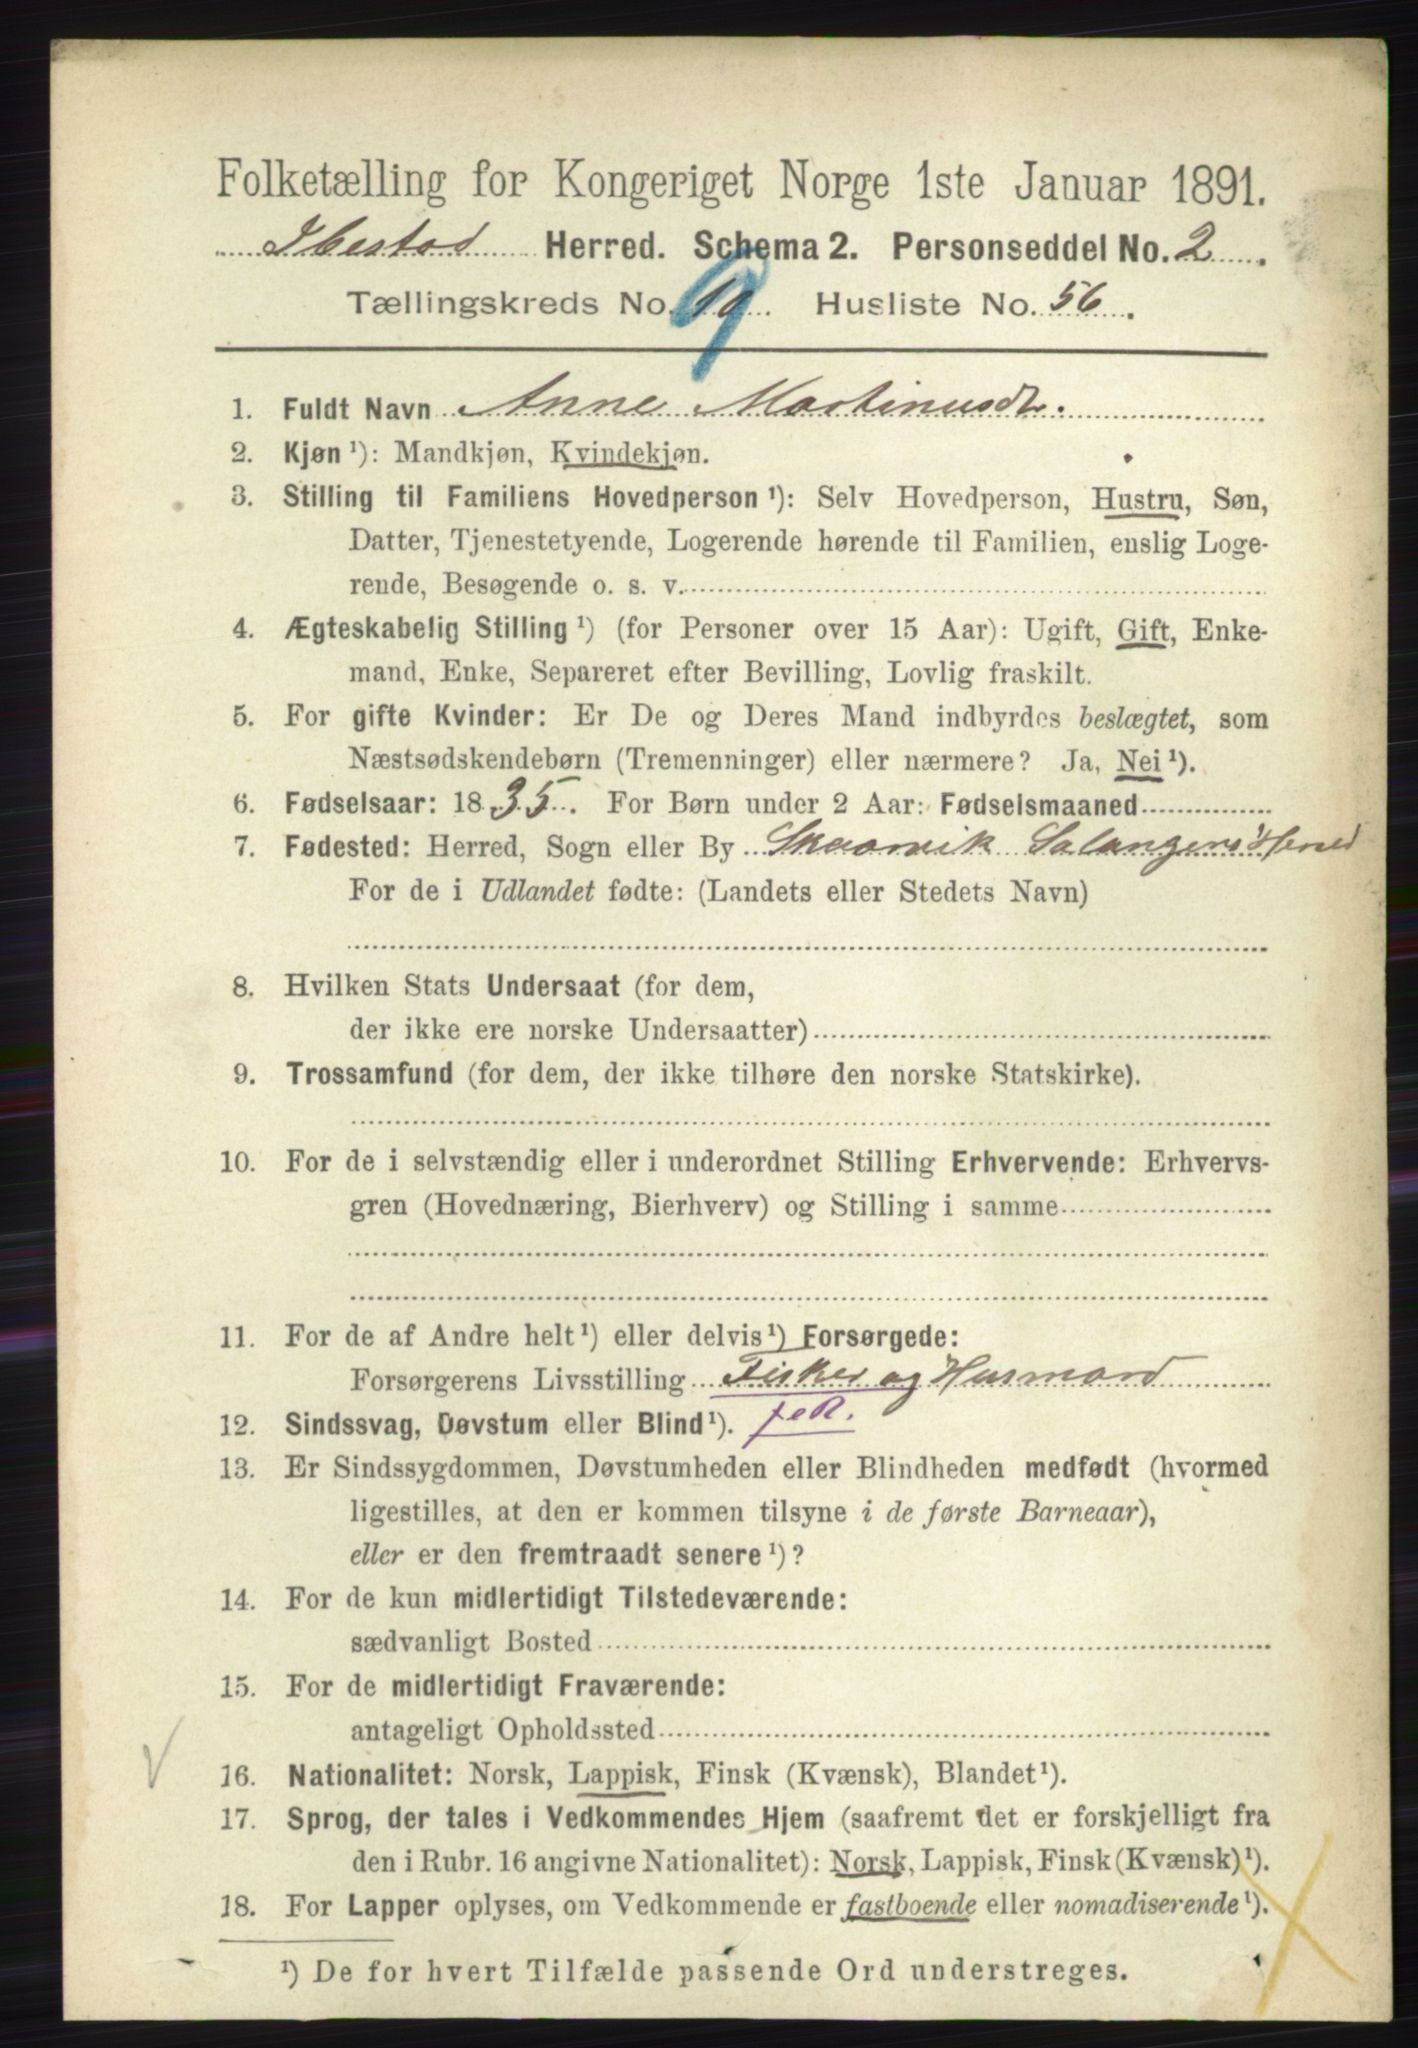 Folketælling for Kongeriget Norge 1ste Januar 1891.
Ibestad Herred. Schema 2. Personseddel No. 2.
Tællingskreds No. 10 9. Husliste No. 56.
1. Fuldt Navn Anne Martinusdt.
2. Kjøn ¹): Mandkjøn, Kvindekjøn.
3. Stilling til Familiens Hovedperson ¹): Selv Hovedperson, Hustru, Søn,
Datter, Tjenestetyende, Logerende hørende til Familien, enslig Loge-
rende, Besøgende o. s. v.
4. Ægteskabelig Stilling ¹) (for Personer over 15 Aar): Ugift, Gift, Enke-
mand, Enke, Separeret efter Bevilling, Lovlig fraskilt.
5. For gifte Kvinder: Er De og Deres Mand indbyrdes beslægtet, som
Næstsødskendebørn (Tremenninger) eller nærmere? Ja, Nei ¹).
6. Fødselsaar: 1835. For Børn under 2 Aar: Fødselsmaaned
7. Fødested: Herred, Sogn eller By Skaarvik Salangens Herred
For de i Udlandet fødte: (Landets eller Stedets Navn)
8. Hvilken Stats Undersaat (for dem,
der ikke ere norske Undersaatter)
9. Trossamfund (for dem, der ikke tilhøre den norske Statskirke).
10. For de i selvstændig eller i underordnet Stilling Erhvervende: Erhvervs-
gren (Hovednæring, Bierhverv) og Stilling i samme
11. For de af Andre helt ¹) eller delvis ¹) Forsørgede:
Forsørgerens Livsstilling Fisker og Husmand
12. Sindssvag, Døvstum eller Blind ¹).
13. Er Sindssygdommen, Døvstumheden eller Blindheden medfødt (hvormed
ligestilles, at den er kommen tilsyne i de første Barneaar),
eller er den fremtraadt senere ¹)?
14. For de kun midlertidigt Tilstedeværende:
sædvanligt Bosted
15. For de midlertidigt Fraværende:
antageligt Opholdssted
16. Nationalitet: Norsk, Lappisk, Finsk (Kvænsk), Blandet ¹).
17. Sprog, der tales i Vedkommendes Hjem (saafremt det er forskjelligt fra
den i Rubr. 16 angivne Nationalitet): Norsk, Lappisk, Finsk (Kvænsk) ¹).
18. For Lapper oplyses, om Vedkommende er fastboende eller nomadiserende ¹).
¹) De for hvert Tilfælde passende Ord understreges.